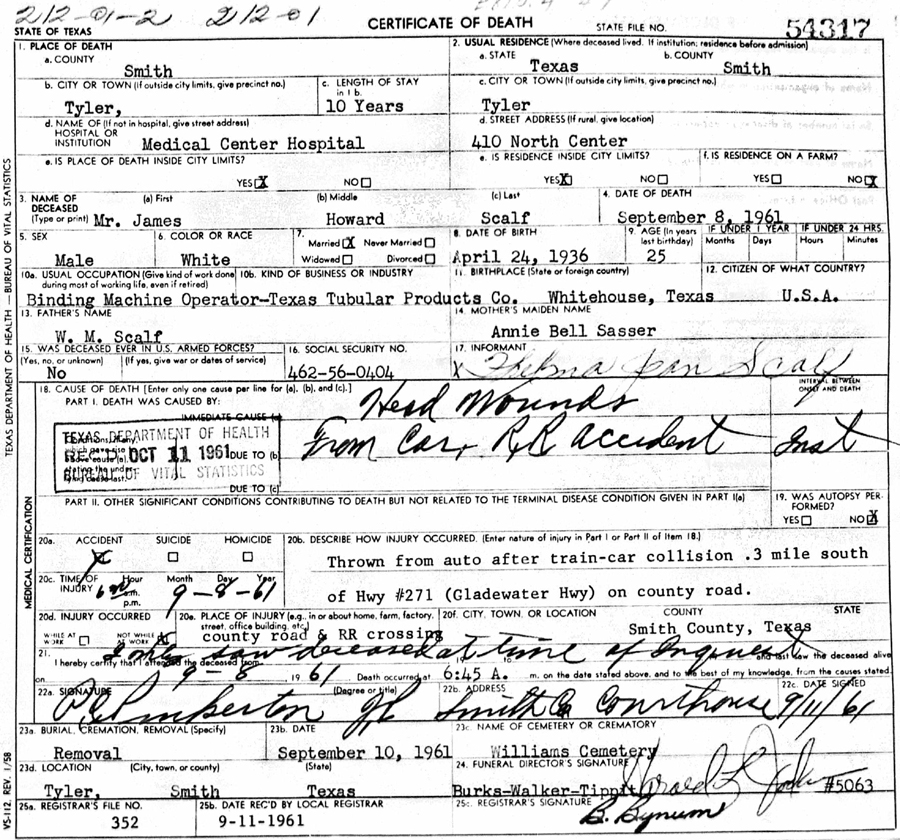 212-01-2 212-01
CERTIFICATE OF DEATH
STATE OF TEXAS STATE FILE NO. 54317
1. PLACE OF DEATH
a. COUNTY
Smith
2. USUAL RESIDENCE (Where deceased lived. If institution; residence before admission)
a. STATE b. COUNTY
Texas Smith
b. CITY OR TOWN (If outside city limits, give precinct no.)
Tyler,
c. LENGTH OF STAY
in 1 b.
10 Years
c. CITY OR TOWN (If outside city limits, give precinct no.)
Tyler
d. NAME OF (If not in hospital, give street address)
HOSPITAL OR
INSTITUTION Medical Center Hospital
d. STREET ADDRESS (If rural, give location)
410 North Center
e. IS PLACE OF DEATH INSIDE CITY LIMITS?
YES X NO
e. IS RESIDENCE INSIDE CITY LIMITS?
YES X NO
f. IS RESIDENCE ON A FARM?
YES NO X
3. NAME OF
DECEASED
(Type or print)
(a) First (b) Middle (c) Last
Mr. James Howard Scalf
4. DATE OF DEATH
September 8, 1961
5. SEX
Male
6. COLOR OR RACE
White
7.
Married X Never Married
Widowed Divorced
8. DATE OF BIRTH
April 24, 1936
9. AGE (In years
last birthday)
25
IF UNDER 1 YEAR
Months Days
IF UNDER 24 HRS.
Hours Minutes
10a. USUAL OCCUPATION (Give kind of work done
during most of working life, even if retired)
10b. KIND OF BUSINESS OR INDUSTRY
Binding Machine Operator-Texas Tubular Products Co.
11. BIRTHPLACE (State or foreign country)
Whitehouse, Texas
12. CITIZEN OF WHAT COUNTRY?
U.S.A.
13. FATHER'S NAME
W. M. Scalf
14. MOTHER'S MAIDEN NAME
Annie Bell Sasser
15. WAS DECEASED EVER IN U.S. ARMED FORCES?
(Yes, no, or unknown) (If yes, give war or dates of service)
No
16. SOCIAL SECURITY NO.
462-56-0404
17. INFORMANT
X Thelma Jean Scalf
18. CAUSE OF DEATH [Enter only one cause per line for (a), (b), and (c).]
INTERVAL BETWEEN
ONSET AND DEATH
PART I. DEATH WAS CAUSED BY:
IMMEDIATE CAUSE (a)
Head Wounds
TEXAS DEPARTMENT OF HEALTH
REC'D OCT 11 1961
BUREAU OF VITAL STATISTICS
DUE TO (b)
From Car, RR accident Inst
DUE TO (c)
PART II. OTHER SIGNIFICANT CONDITIONS CONTRIBUTING TO DEATH BUT NOT RELATED TO THE TERMINAL DISEASE CONDITION GIVEN IN PART I(a)
19. WAS AUTOPSY PER-
FORMED?
YES NO X
MEDICAL CERTIFICATION
20a. ACCIDENT SUICIDE HOMICIDE
X
20b. DESCRIBE HOW INJURY OCCURRED. (Enter nature of injury in Part I or Part II of Item 18.)
Thrown from auto after train-car collision .3 mile south
of Hwy #271 (Gladewater Hwy) on county road.
20c. TIME OF
INJURY
Hour Month Day Year
a.m.
p.m.
9-8-61
20d. INJURY OCCURRED
WHILE AT
WORK
NOT WHILE
AT WORK X
20e. PLACE OF INJURY (e.g., in or about home, farm, factory,
street, office building, etc.)
county road & RR crossing
20f. CITY, TOWN, OR LOCATION COUNTY STATE
Smith County, Texas
21. I only saw deceased at time of Inquest
I hereby certify that I attended the deceased from 19 to and last saw the deceased alive
on 9-8 1961 Death occurred at 6:45 A. m. on the date stated above, and to the best of my knowledge, from the causes stated.
22a. SIGNATURE (Degree or title)
Pemberton JP
22b. ADDRESS
Smith Co Courthouse
22c. DATE SIGNED
9/11/61
23a. BURIAL, CREMATION, REMOVAL (Specify)
Removal
23b. DATE
September 10, 1961
23c. NAME OF CEMETERY OR CREMATORY
Williams Cemetery
23d. LOCATION (City, town, or county) (State)
Tyler, Smith Texas
24. FUNERAL DIRECTOR'S SIGNATURE
Burks-Walker-Tippit #5063
25a. REGISTRAR'S FILE NO.
352
25b. DATE REC'D BY LOCAL REGISTRAR
9-11-1961
25c. REGISTRAR'S SIGNATURE
B. Bynum
TEXAS DEPARTMENT OF HEALTH — BUREAU OF VITAL STATISTICS
VS-112. REV. 1/58